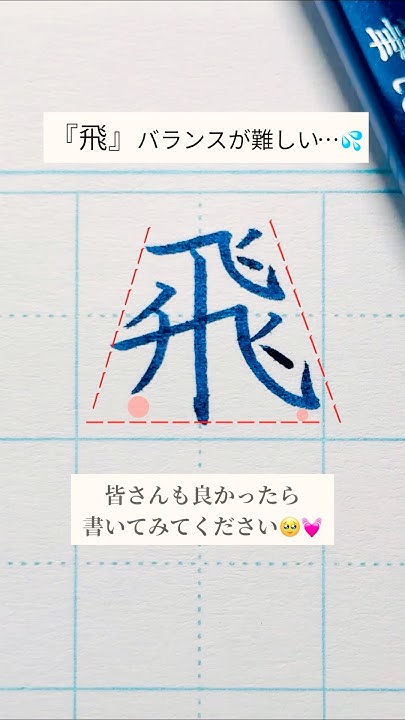 『飛』 バランスが難しい…💦
飛
皆さんも良かったら
書いてみてください🥹💓